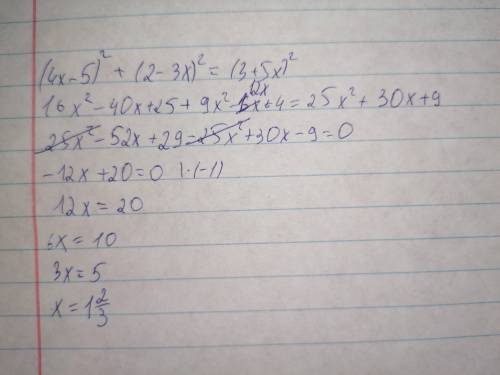 (4x-5)² + (2-3x)² = (3+5x)²
16x² - 40x + 25 + 9x² - 12x + 4 = 25x² + 30x + 9
25x² - 52x + 29 - 25x² + 30x - 9 = 0
-12x + 20 = 0 |·(-1)
12x = 20
6x = 10
3x = 5
x = 1 2/3